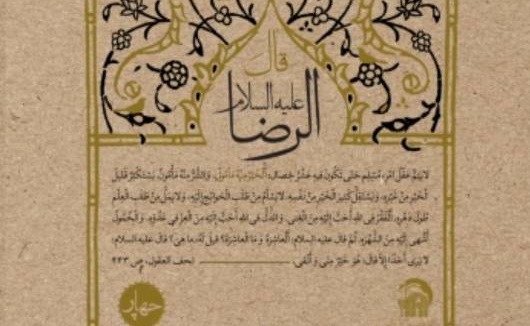 قال
الرضا
علیه السلام
لایتم عقل امرء مسلم حتی تکون فیه عشر خصال: الخیر منه مأمول، والشر منه مأمون، یستکثر قلیل
الخیر من غیره، ویستقل کثیر الخیر من نفسه، لایسأم من طلب الحوائج إلیه، ولایمل من طلب العلم
طول دهره، الفقر فی الله أحب إلیه من الغنی، والذل فی الله أحب إلیه من العز فی عدوه، والخمول
أشهی إلیه من الشهرة، ثم قال علیه السلام: العاشرة وما العاشرة؟ قیل له: ما هی؟ قال علیه السلام:
لایری أحدا إلا قال: هو خیر منی وأتقی. تحف العقول، ص ۴۴۳
چهار